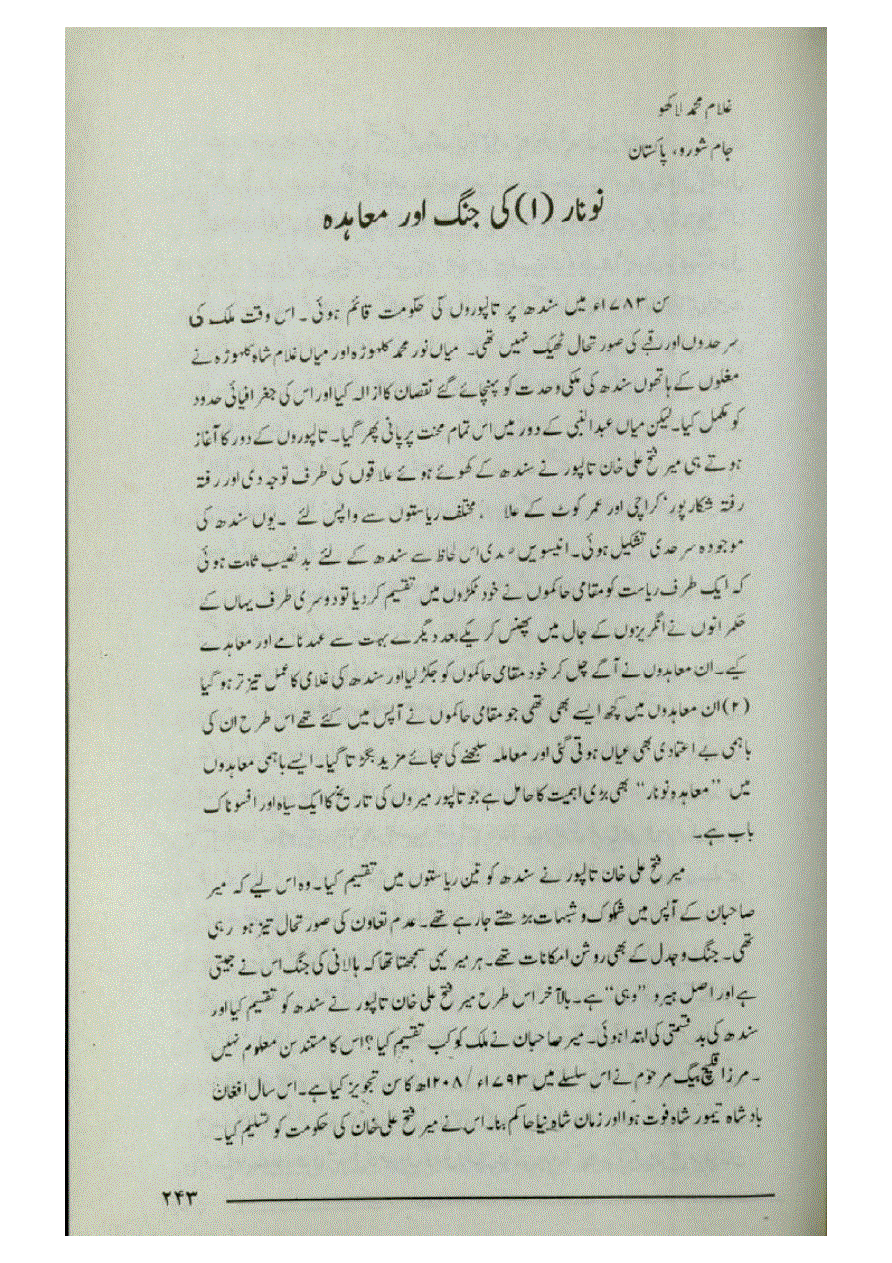 غلام محمد لاکھو
جام شورو، پاکستان
نونار (۱) کی جنگ اور معاہدہ
سن ۱۷۸۳ء میں سندھ پر تالپوروں کی حکومت قائم ہوئی ۔ اس وقت ملک کی
سرحدوں اور رقبے کی صورتحال ٹھیک نہیں تھی۔ میاں نور محمد کلہوڑہ اور میاں غلام شاہ کلہوڑہ نے
مغلوں کے ہاتھوں سندھ کی ملکی وحدت کو پہنچائے گئے نقصان کا ازالہ کیا اور اس کی جغرافیائی حدود
کو مکمل کیا۔ لیکن میاں عبدالنبی کے دور میں اس تمام محنت پر پانی پھر گیا۔ تالپوروں کے دور کا آغاز
ہوتے ہی میر فتح علی خان تالپور نے سندھ کے کھوئے ہوئے علاقوں کی طرف توجہ دی اور رفتہ
رفتہ شکارپور، کراچی اور عمر کوٹ کے علا ، مختلف ریاستوں سے واپس لئے ۔ یوں سندھ کی
موجودہ سرحدی تشکیل ہوئی۔ انیسویں صدی اس لحاظ سے سندھ کے لئے بدنصیب ثابت ہوئی
کہ ایک طرف ریاست کو مقامی حاکموں نے خود ٹکڑوں میں تقسیم کر دیا تو دوسری طرف یہاں کے
حکمرانوں نے انگریزوں کے جال میں پھنس کر یکے بعد دیگرے بہت سے عہد نامے اور معاہدے
کیے۔ ان معاہدوں نے آگے چل کر خود مقامی حاکموں کو جکڑ لیا اور سندھ کی غلامی کا عمل تیز تر ہو گیا
(۲) ان معاہدوں میں کچھ ایسے بھی تھی جو مقامی حاکموں نے آپس میں کئے تھے اس طرح ان کی
باہمی بے اعتمادی بھی عیاں ہوتی گئی اور معاملہ سلجھنے کی بجائے مزید بگڑتا گیا۔ ایسے باہمی معاہدوں
میں "معاہدہ نونار" بھی بڑی اہمیت کا حامل ہے جو تالپور میروں کی تاریخ کا ایک سیاہ اور افسوناک
باب ہے۔
میر فتح علی خان تالپور نے سندھ کو تین ریاستوں میں تقسیم کیا۔ وہ اس لیے کہ میر
صاحبان کے آپس میں شکوک و شبہات بڑھتے جارہے تھے۔ عدم تعاون کی صورتحال تیز ہو رہی
تھی۔ جنگ و جدل کے بھی روشن امکانات تھے۔ ہر میر یہی سمجھتا تھا کہ ہالانی کی جنگ اس نے جیتی
ہے اور اصل ہیرو "وہی" ہے۔ بالآخر اس طرح میر فتح علی خان تالپور نے سندھ کو تقسیم کیا اور
سندھ کی بدقسمتی کی ابتدا ہوئی۔ میر صاحبان نے ملک کو کب تقسیم کیا؟ اس کا مستند سن معلوم نہیں
۔ مرزا قلیچ بیگ مرحوم نے اس سلسلے میں ۱۷۹۳ء / ۱۲۰۸ھ کا سن تجویز کیا ہے۔ اس سال افغان
بادشاہ تیمور شاہ فوت ہوا اور زمان شاہ نیا حاکم بنا۔ اس نے میر فتح علی خان کی حکومت کو تسلیم کیا۔
۲۴۳